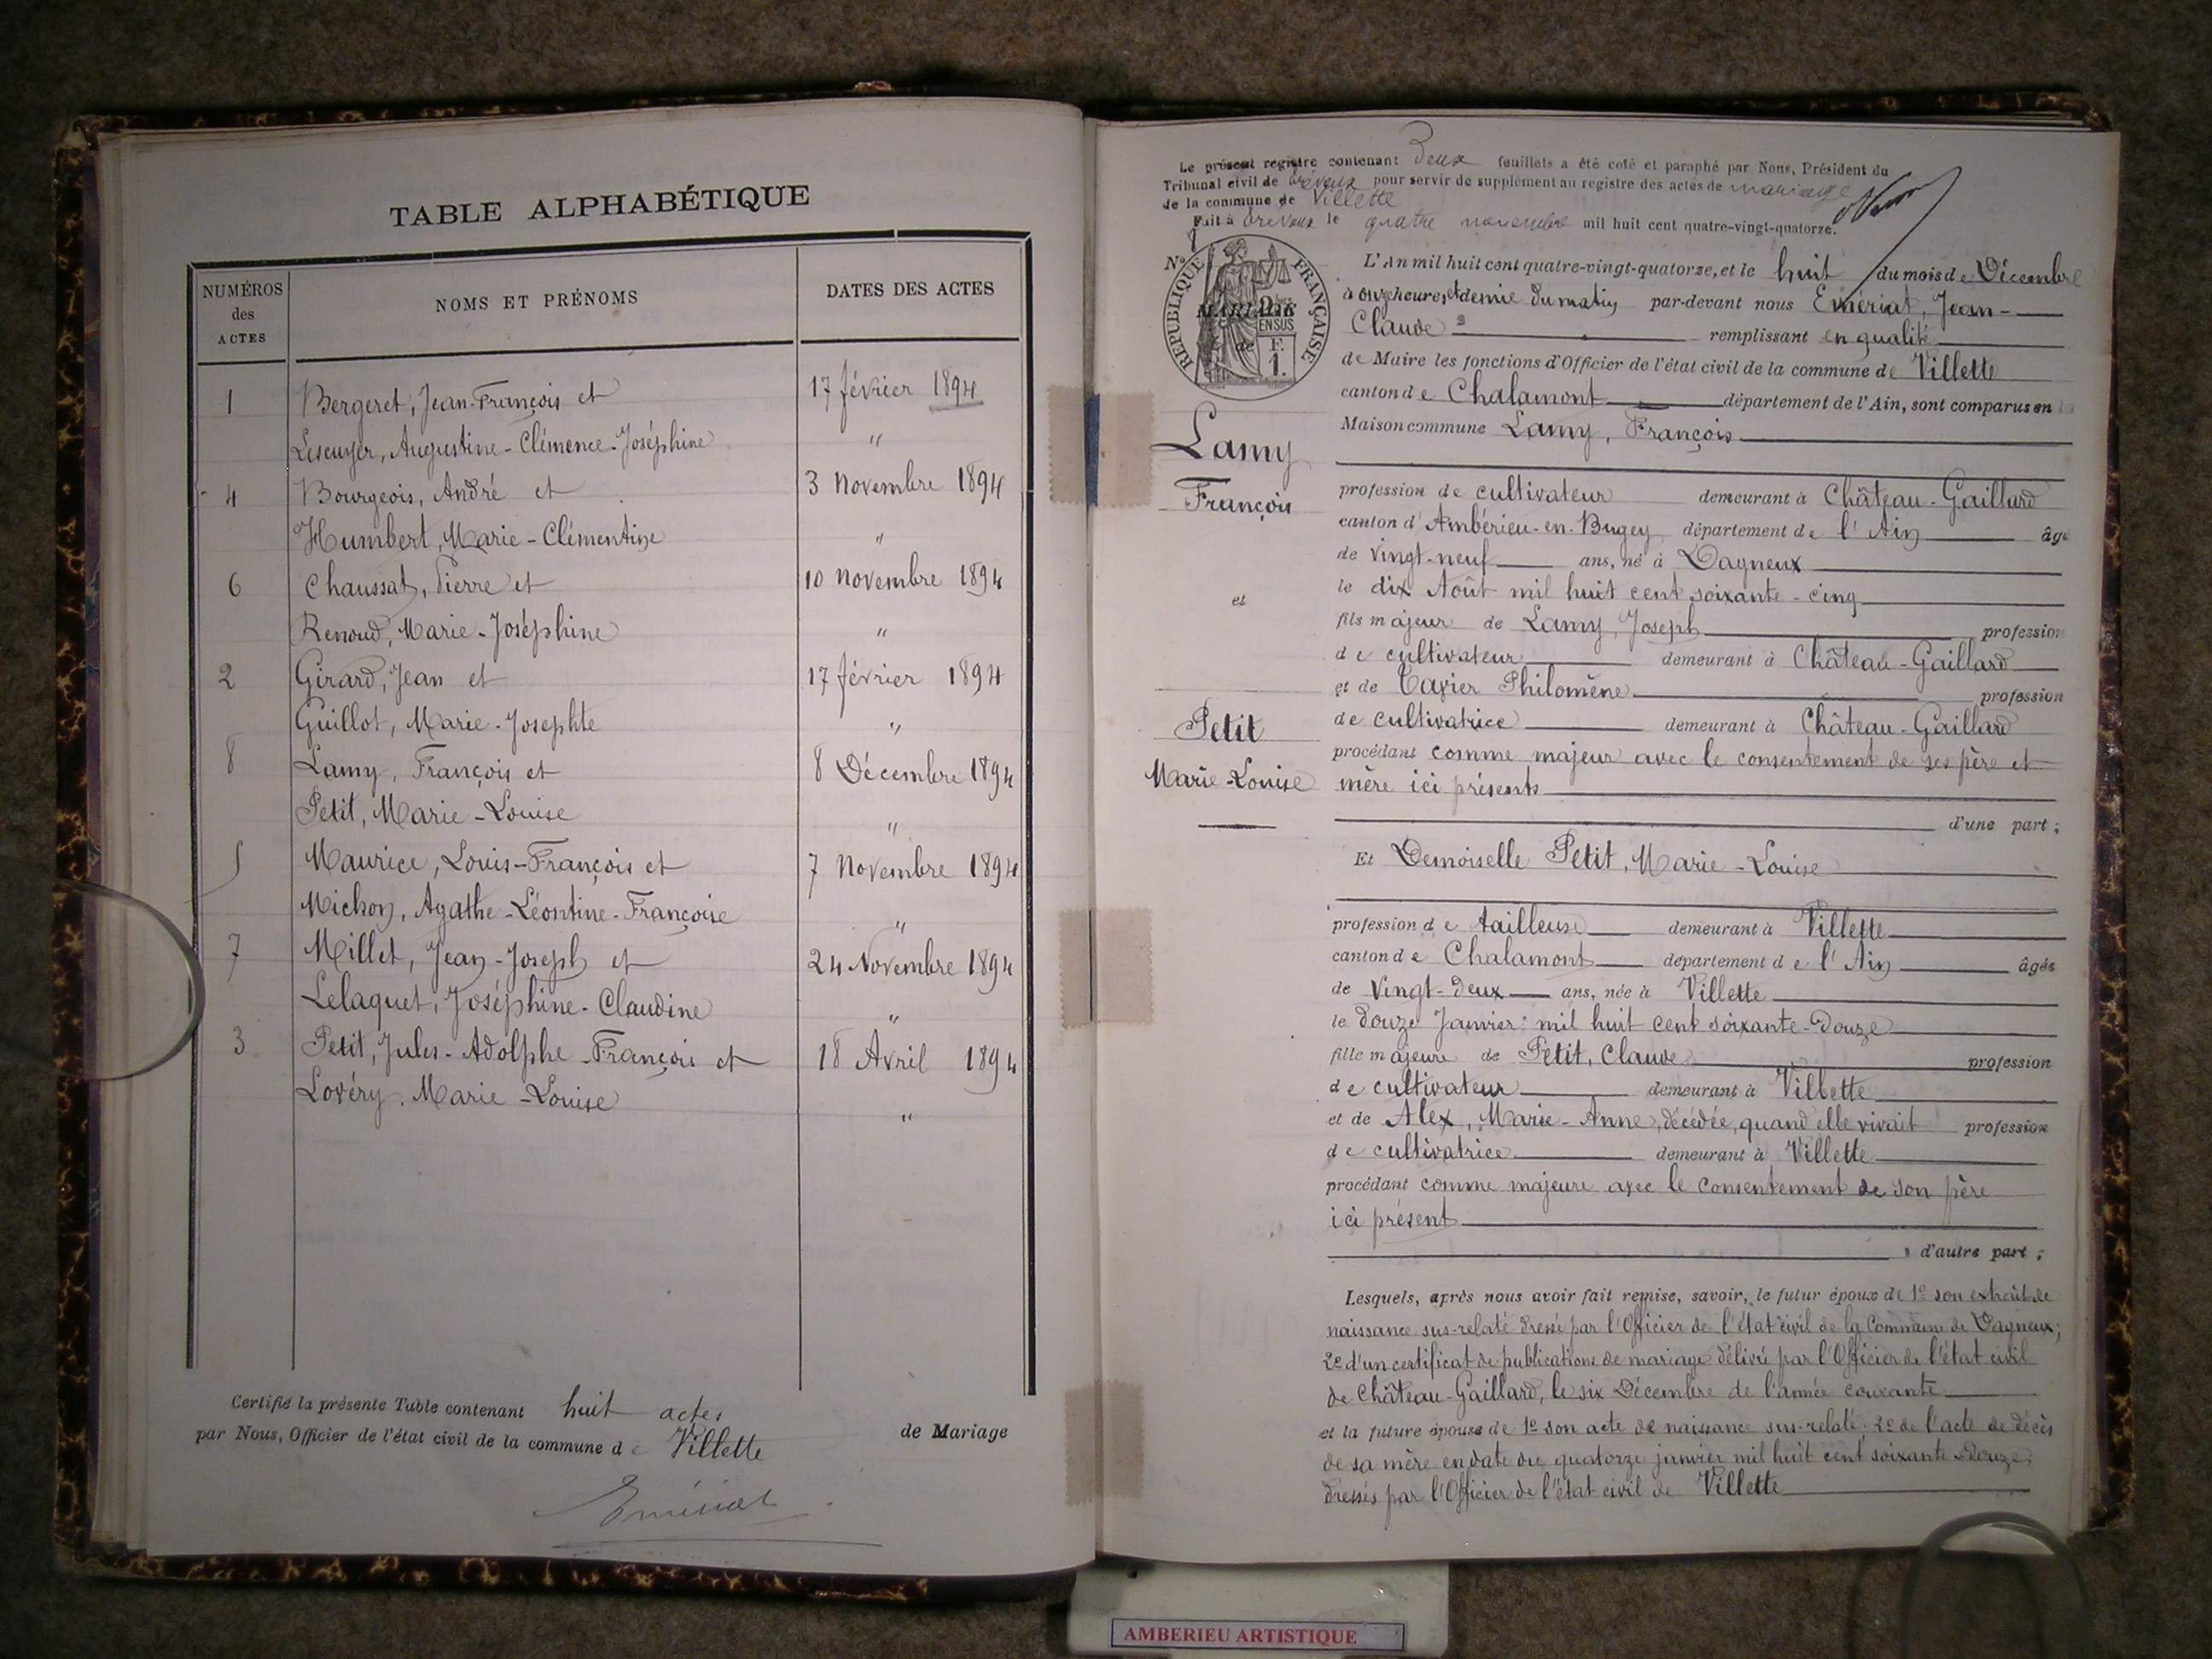 TABLE ALPHABÉTIQUE
NUMÉROS
des
ACTES
NOMS ET PRÉNOMS
DATES DES ACTES
1 Bergeret, Jean-François et 17 février 1894
Lescuyer, Augustine-Clémence-Joséphine "
4 Bourgeois, André et 3 Novembre 1894
Humbert, Marie-Clémentine "
6 Chaussat, Pierre et 10 novembre 1894
Renoud, Marie-Joséphine "
2 Girard, Jean et 17 février 1894
Guillot, Marie-Josephte "
8 Lamy, François et 8 Décembre 1894
Petit, Marie-Louise "
5 Maurice, Louis-François et 7 Novembre 1894
Michon, Agathe-Léontine-Françoise "
7 Millet, Jean-Joseph et 24 Novembre 1894
Lelaquet, Joséphine-Claudine "
3 Petit, Jules-Adolphe-François et 18 Avril 1894
Lovéry, Marie-Louise "
Certifié la présente Table contenant huit actes de Mariage
par Nous, Officier de l'état civil de la commune de Villette
Emériat
Le présent registre contenant Deux feuillets a été coté et paraphé par Nous, Président du
Tribunal civil de Trévoux pour servir de supplément au registre des actes de mariage
de la commune de Villette
Fait à Trévoux le quatre novembre mil huit cent quatre-vingt-quatorze.
No 8
RÉPUBLIQUE FRANÇAISE
MARIAGE
de
2
EN SUS
F.
1.
Lamy
François
et
Petit
Marie-Louise
L'An mil huit cent quatre-vingt-quatorze, et le huit du mois de Décembre
à onze heures et demie du matin par-devant nous Emeriat, Jean-
Claude remplissant en qualité
de Maire les fonctions d'Officier de l'état civil de la commune de Villette
canton de Chalamont département de l'Ain, sont comparus en la
Maison commune Lamy, François
profession de cultivateur demeurant à Château-Gaillard
canton d'Ambérieu-en-Bugey département de l'Ain âgé
de vingt-neuf ans, né à Dagneux
le dix Août mil huit cent soixante-cinq
fils majeur de Lamy, Joseph profession
de cultivateur demeurant à Château-Gaillard
et de Philomène profession
de cultivatrice demeurant à Château-Gaillard
procédant comme majeur avec le consentement de ses père et
mère ici présents
d'une part;
Et Demoiselle Petit, Marie-Louise
profession de tailleuse demeurant à Villette
canton de Chalamont département de l'Ain âgée
de vingt-deux ans, née à Villette
le douze Janvier mil huit cent soixante-douze
fille majeure de Petit, Claude profession
de cultivateur demeurant à Villette
et de Alex, Marie-Anne, décédée, quand elle vivait profession
de cultivatrice demeurant à Villette
procédant comme majeure avec le consentement de son père
ici présent
d'autre part;
Lesquels, après nous avoir fait remise, savoir, le futur époux de 1º son extrait de
naissance sus-relaté dressé par l'Officier de l'état civil de la Commune de Dagneux;
2º d'un certificat de publications de mariage délivré par l'Officier de l'état civil
de Château-Gaillard, le six Décembre de l'année courante
et la future épouse de 1º son acte de naissance sus-relaté; 2º de l'acte de décès
de sa mère en date du quatorze janvier mil huit cent soixante-douze,
dressés par l'Officier de l'état civil de Villette
AMBERIEU ARTISTIQUE